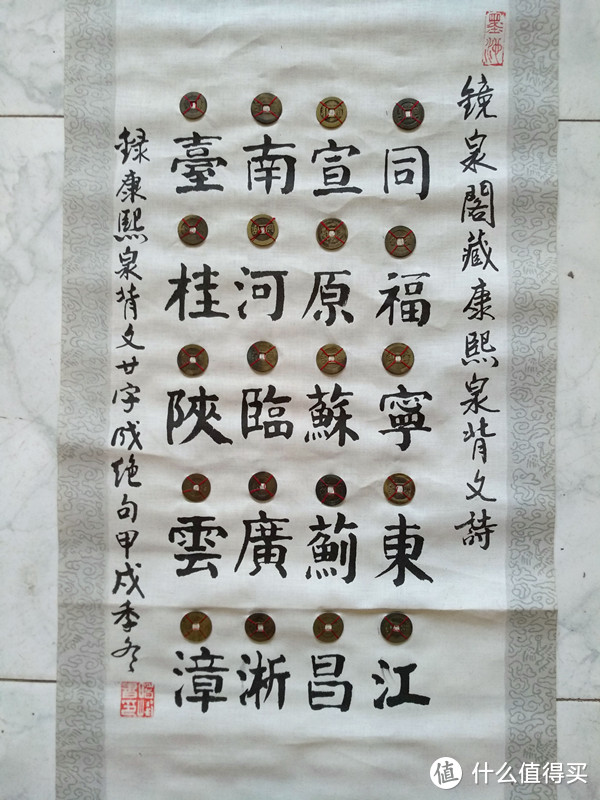 墨海
鏡泉閣藏康熙泉背文詩
同福寧東江
宣原蘇薊昌
南河臨廣浙
臺桂陝雲漳
録康熙泉背文廿字成絶句甲戌季冬
值 什么值得买